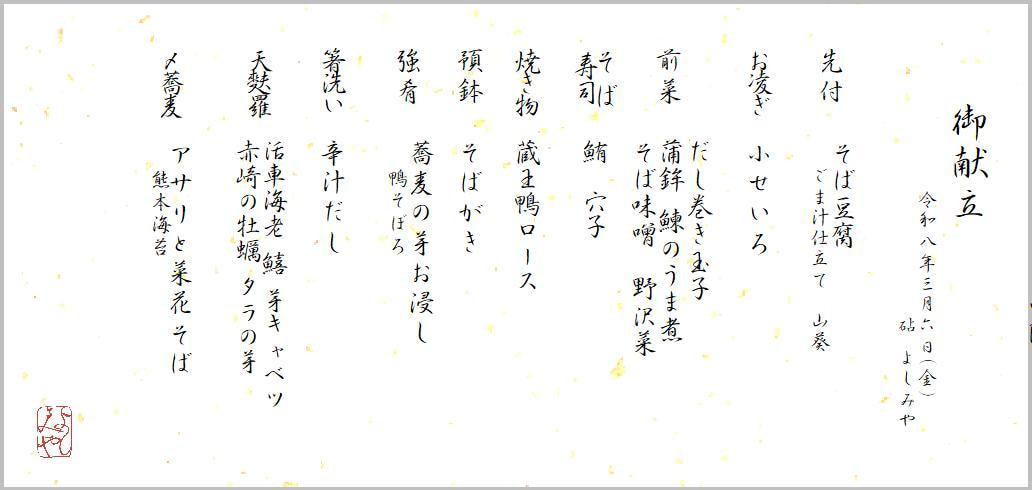 御献立
令和八年三月六日(金)
砧 よしみや
先付 そば豆腐
ごま汁仕立て 山葵
お凌ぎ 小せいろ
前菜 だし巻き玉子
蒲鉾 鰊のうま煮
そば味噌 野沢菜
そば寿司 鮪 穴子
焼き物 蔵王鴨ロース
預鉢 そばがき
強肴 蕎麦の芽お浸し
鴨そぼろ
箸洗い 辛汁だし
天麩羅 活車海老 鱚 芽キャベツ
赤崎の牡蠣 タラの芽
〆蕎麦 アサリと菜花そば
熊本海苔
よしみや